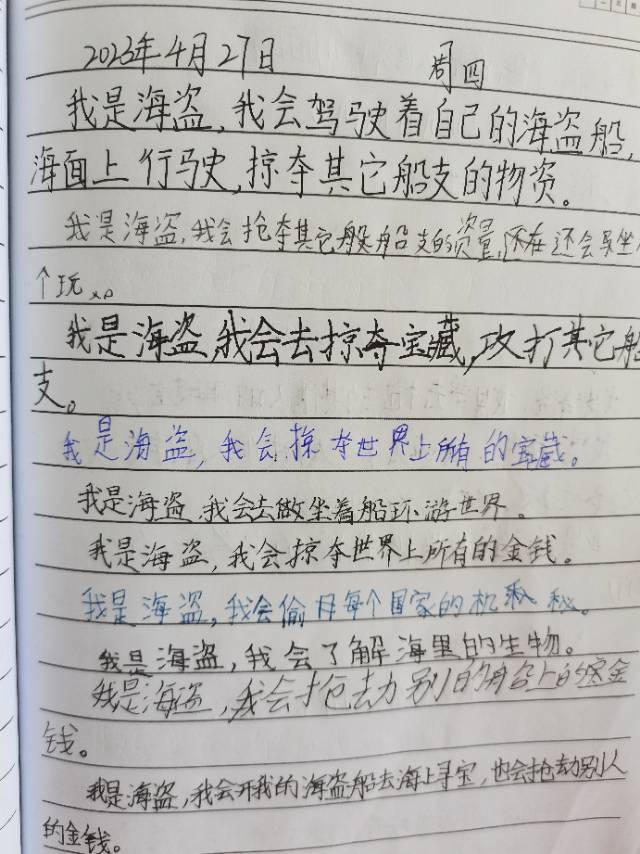 2023年4月27日 周四
我是海盗,我会驾驶着自己的海盗船,
海面上行驶,掠夺其它船支的物资。
我是海盗,我会抢夺其它船支的资量,还在还会
个玩
我是海盗,我会去掠夺宝藏,攻打其它船
支。
我是海盗,我会掠夺世界上所有的宝藏。
我是海盗,我会去做坐着船环游世界。
我是海盗,我会掠夺世界上所有的金钱。
我是海盗,我会偷每个国家的机秘。
我是海盗,我会了解海里的生物。
我是海盗,我会抢劫别的船上的金
钱。
我是海盗,我会开我的海盗船去海上寻宝,也会抢劫别人
的金钱。